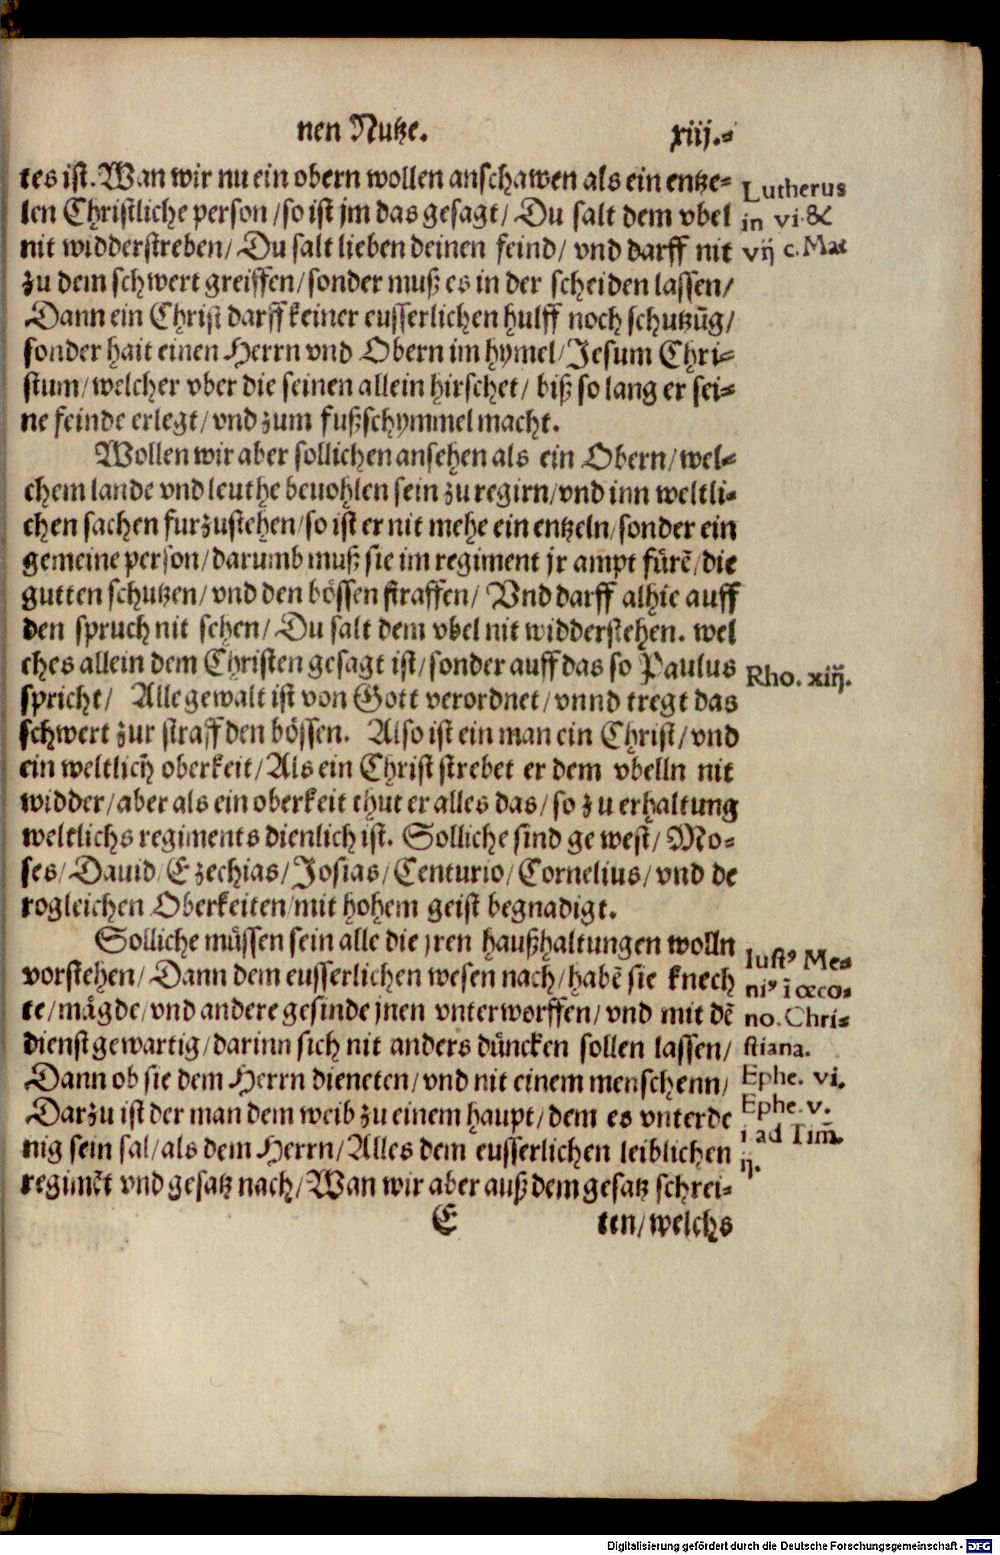 nen Nutze. xiij.
tes ist. Wan wir nu ein obern wollen anschawen als ein entze-
len Christliche person / so ist jm das gesagt / Du salt dem vbel
nit widderstreben / Du salt lieben deinen feind / vnd darff nit
zu dem schwert greiffen / sonder muß es in der scheiden lassen /
Dann ein Christ darff keiner eusserlichen hulff noch schutzũg /
sonder hait einen Herrn vnd Obern im hymel / Jesum Chri-
stum / welcher vber die seinen allein hirschet / biß so lang er sei-
ne feinde erlegt / vnd zum fußschymmel macht.
Wollen wir aber sollichen ansehen als ein Obern / wel-
chem lande vnd leuthe beuohlen sein zu regirn / vnd inn weltli-
chen sachen furzustehen / so ist er nit mehe ein entzeln / sonder ein
gemeine person / darumb muß sie im regiment jr ampt fürẽ / die
gutten schutzen / vnd den bössen straffen / Vnd darff alhie auff
den spruch nit sehen / Du salt dem vbel nit widderstehen. wel
ches allein dem Christen gesagt ist / sonder auff das so Paulus
spricht / Alle gewalt ist von Gott verordnet / vnnd tregt das
schwert zur straff den bössen. Also ist ein man ein Christ / vnd
ein weltlich̃ oberkeit / Als ein Christ strebet er dem vbelln nit
widder / aber als ein oberkeit thut er alles das / so zu erhaltung
weltlichs regiments dienlich ist. Solliche sind gewest / Mo-
ses / Dauid / Ezechias / Josias / Centurio / Cornelius / vnd de
rogleichen Oberkeiten / mit hohem geist begnadigt.
Solliche müssen sein alle die jren haußhaltungen wolln
vorstehen / Dann dem eusserlichen wesen nach / habẽ sie knech
te / mägde / vnd andere gesinde jnen vnterworffen / vnd mit dẽ
dienst gewartig / darinn sich nit anders düncken sollen lassen /
Dann ob sie dem Herrn dieneten / vnd nit einem menschenn /
Darzu ist der man dem weib zu einem haupt / dem es vnterde
nig sein sal / als dem Herrn / Alles dem eusserlichen leiblichen
regimẽt vnd gesatz nach / Wan wir aber auß dem gesatz schrei-
E ten / welchs
Lutherus
in vi. &
vij c. Mat
Rho. xiij.
Iustꝰ Me-
niꝰ ĩ œco-
no. Chri-
stiana.
Ephe. vi.
Ephe. v.
i ad Tim̃.
ij.
Digitalisierung gefördert durch die Deutsche Forschungsgemeinschaft - DFG